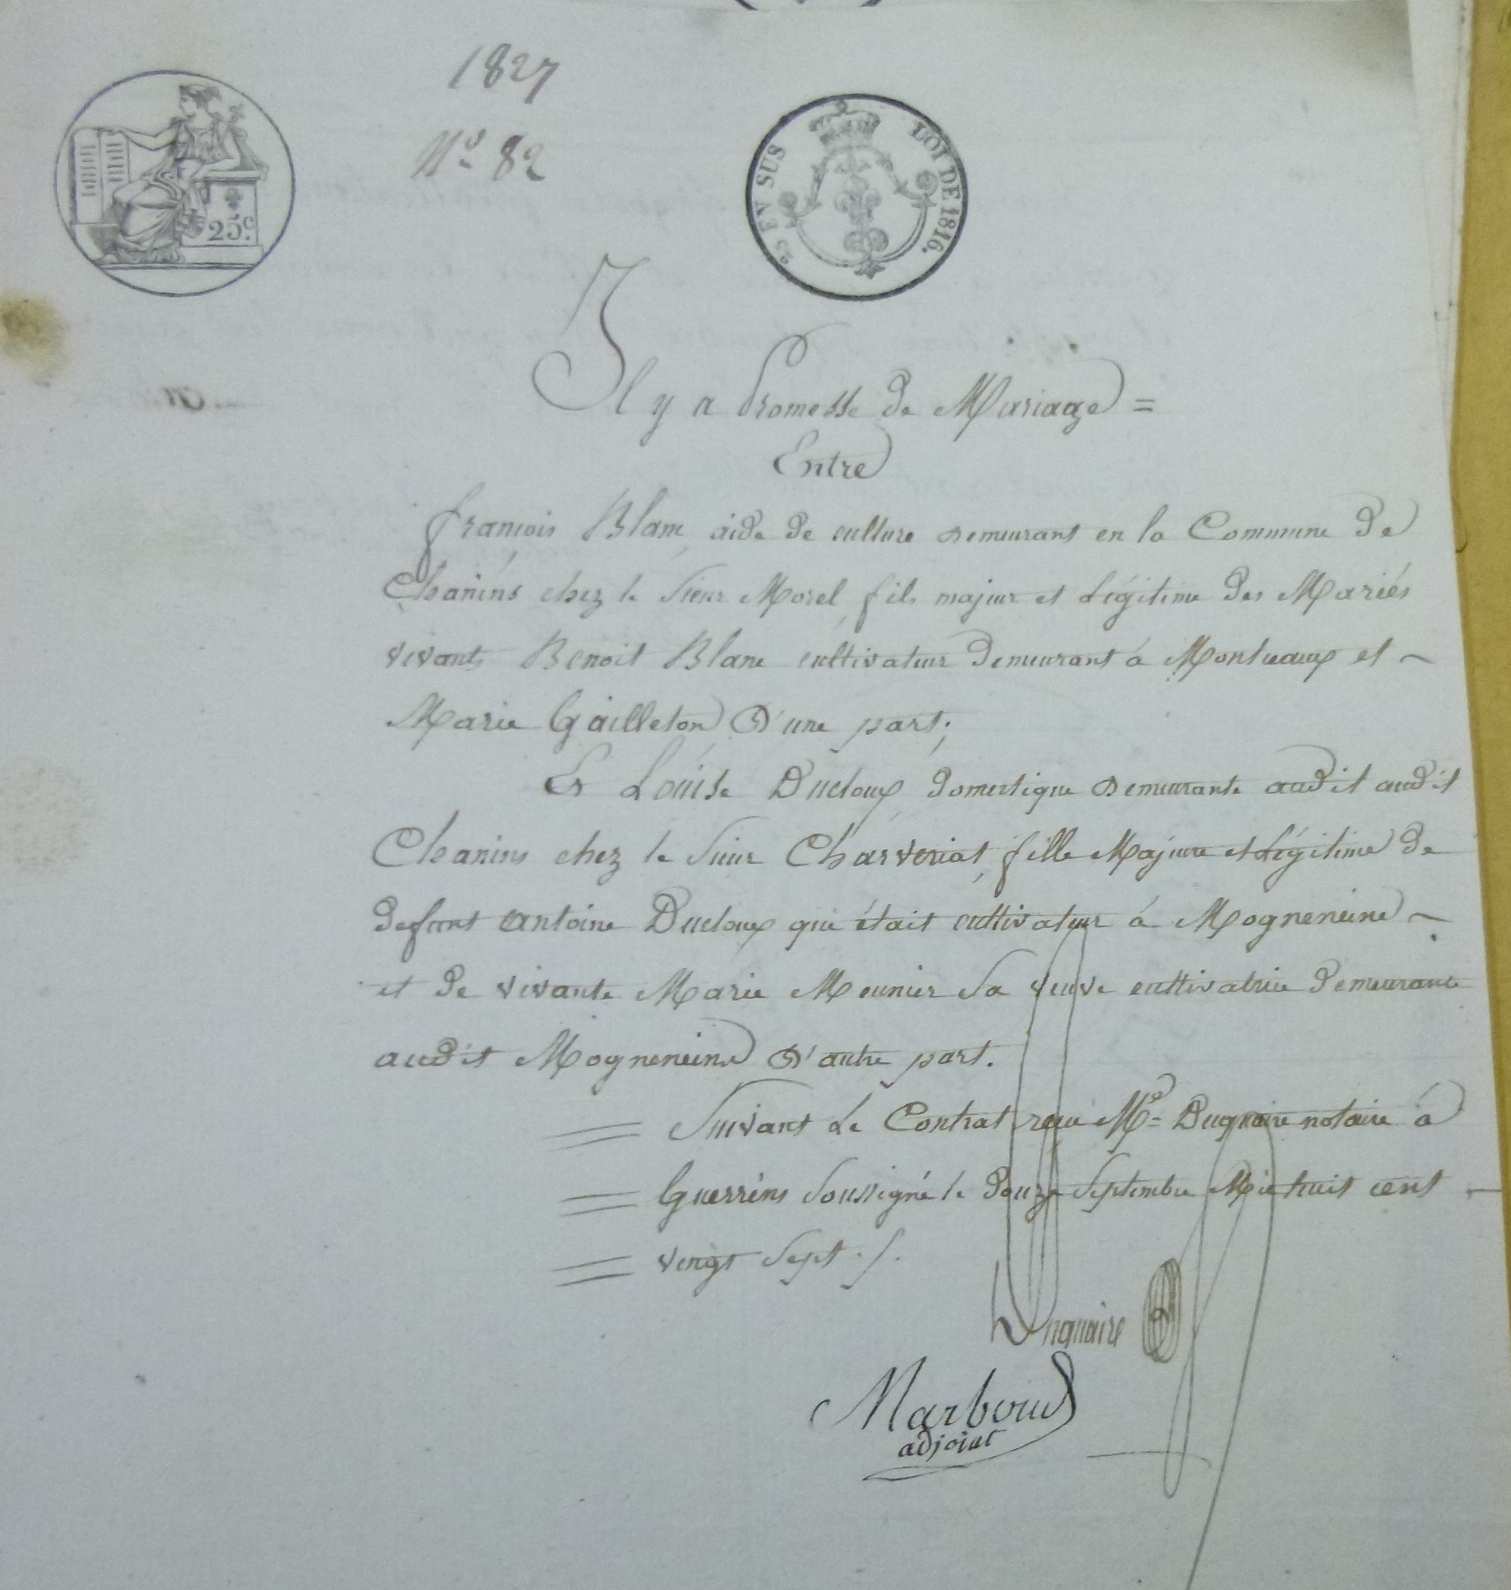 1827
N° 82
25 c.
25 EN SUS
LOI DE 1816.
Il y a Promesse de Mariage =
Entre
françois Blanc, aide de culture demeurant en la Commune de
Chanins chez le Sieur Morel, fils majeur et Légitime des Mariés
vivants Benoit Blanc cultivateur demeurant à Montceaux et ~
Marie Gailleton D'une part;
Et Louise Ducloux, domestique demeurante audit audit
Chanins chez le Sieur Charveriat, fille Majeure et Légitime de
defunt antoine Ducloux qui était cultivateur à Mogneneins ~
et de vivante Marie Meunier Sa veuve cultivatrice demeurante
audit Mogneneins D'autre part.
= Suivant Le Contrat reçu Me = Dugnaire notaire à
= Guerreins Soussigné le douze Septembre Mil huit cent —
= vingt Sept ./.
Dugnaire
Marboud
adjoint